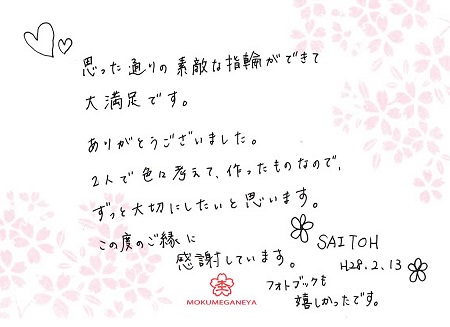 思った通りの素敵な指輪ができて
大満足です。
ありがとうございました。
2人で色々考えて、作ったものなので、
ずっと大切にしたいと思います。
この度のご縁に
感謝しています。
SAITOH
H28.2.13
フォトブックも
嬉しかったです。
MOKUMEGANEYA